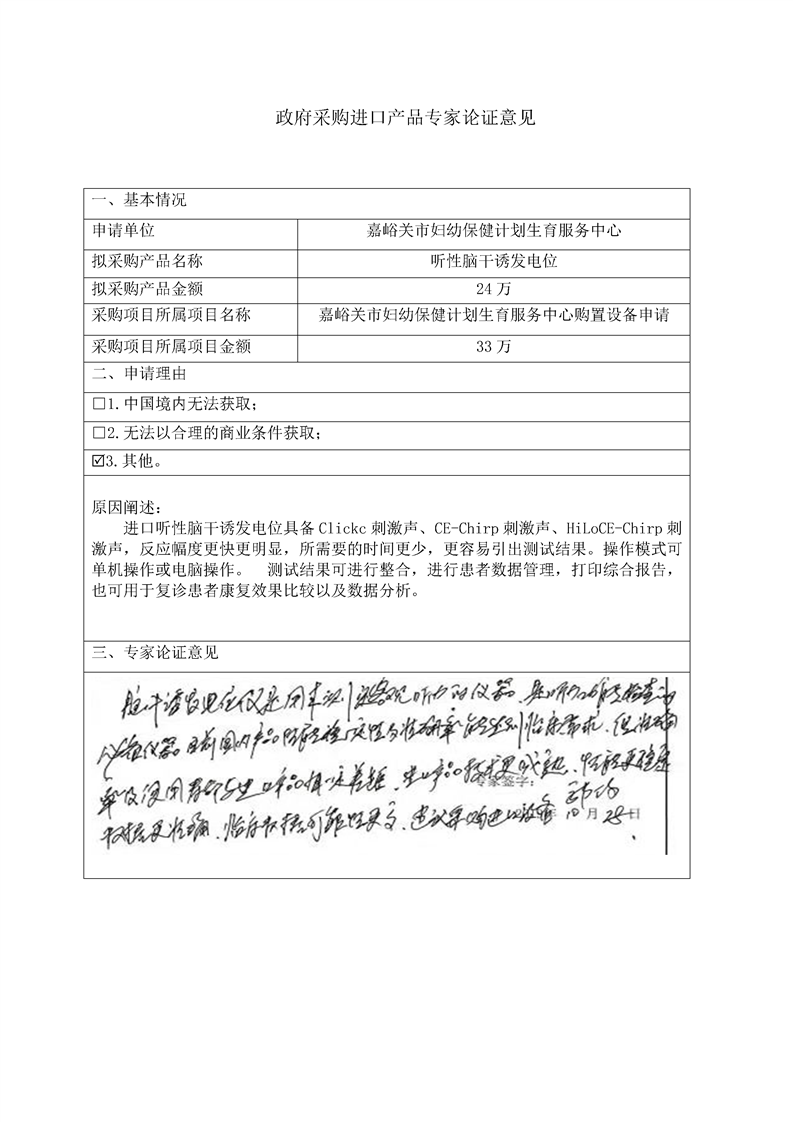 政府采购进口产品专家论证意见
一、基本情况
申请单位 嘉峪关市妇幼保健计划生育服务中心
拟采购产品名称 听性脑干诱发电位
拟采购产品金额 24 万
采购项目所属项目名称 嘉峪关市妇幼保健计划生育服务中心购置设备申请
采购项目所属项目金额 33 万
二、申请理由
□1.中国境内无法获取；
□2.无法以合理的商业条件获取；
☑3.其他。
原因阐述：
进口听性脑干诱发电位具备 Clickc 刺激声、CE-Chirp 刺激声、HiLoCE-Chirp 刺
激声，反应幅度更快更明显，所需要的时间更少，更容易引出测试结果。操作模式可
单机操作或电脑操作。 测试结果可进行整合，进行患者数据管理，打印综合报告，
也可用于复诊患者康复效果比较以及数据分析。
三、专家论证意见
脑干诱发电位仪是用来测客观听力的仪器，是听力
必备仪器。目前国内产品 性与准确率能达到临床需求，但准确
率及使用寿命与进口产品有一定差距，进口产品技术更成熟、性能更稳定
更准确、临床 可能性更高，建议采购进口设备
专家签字：
10 月 28 日